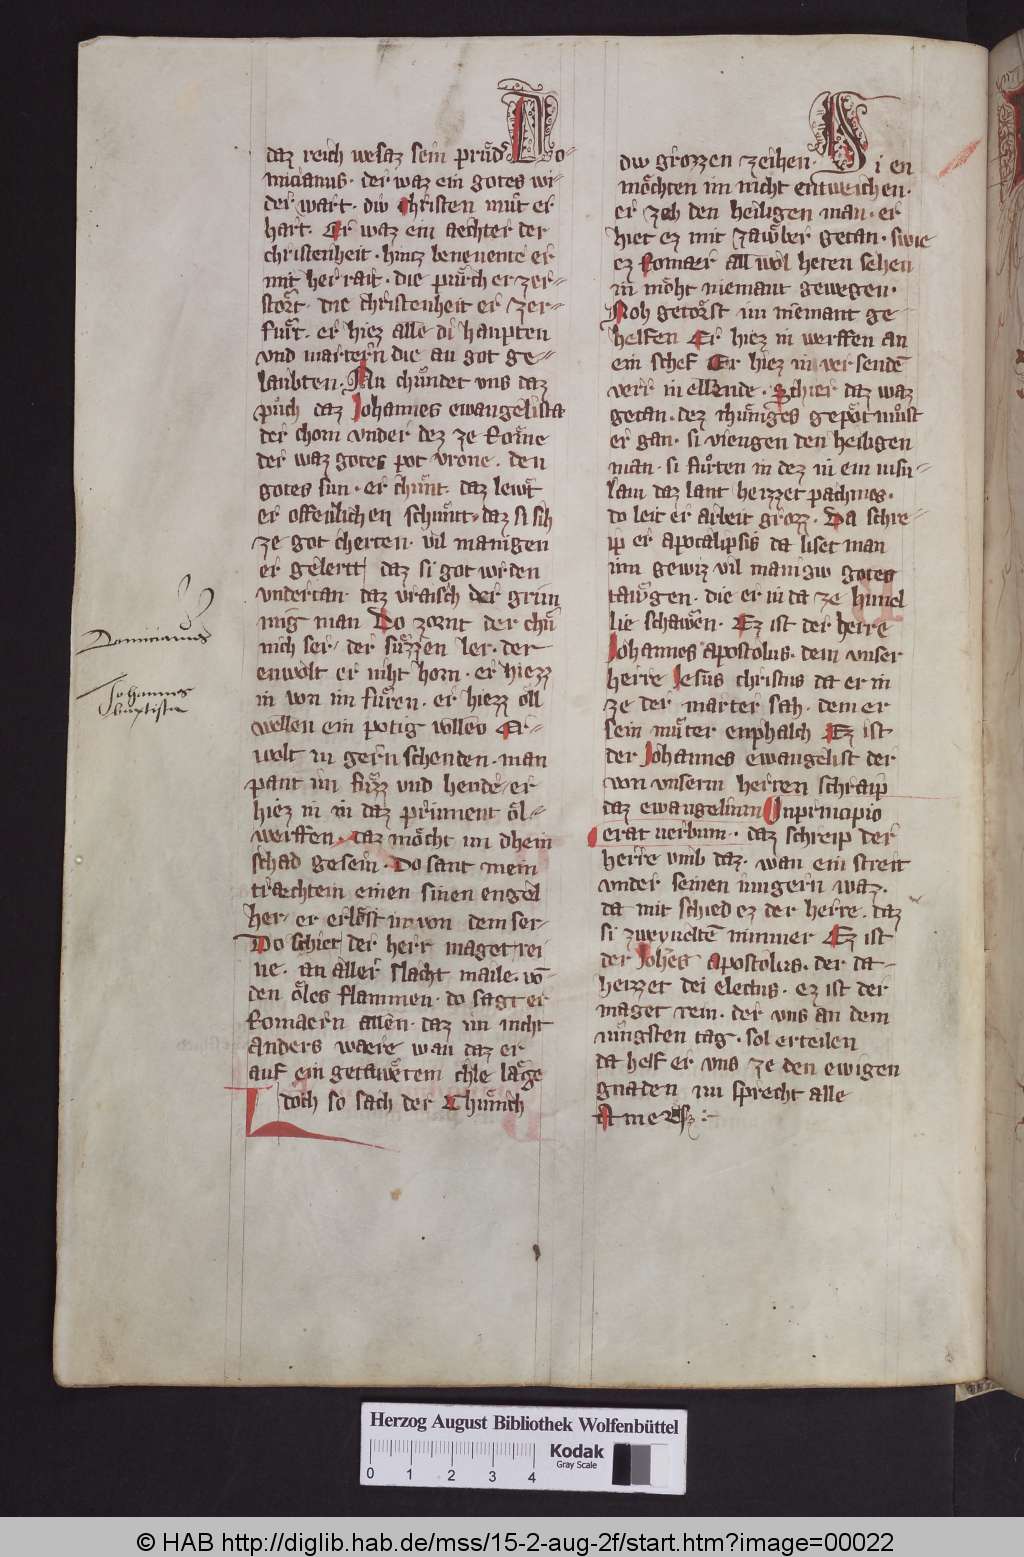 daz reich wesaz sein průdˀ Do-
micianus · der waz ein gotes wi-
der wart · diw christen můt er
hart · Er waz ein aechter der
christenheit · hintz beneuente er
mit her rait · die pürch er zer-
stort · die christenheit er zer-
fůrt · er hiez alle di haupten
vnd martern die an got ge-
laubten · Nu chůndet vns daz
půch daz Johannes ewangelista
der chom vnder dez ze Rome
der waz gotes pot vrone · den
gotes sun · er chunt · daz lewt
er offenlichen schunt · daz si sih
ze got cherten · vil manigen
er gelertt daz si got wrden
vndertan · daz vraisch der grim
mig man Do zornt der chů
nich ser · der suzzen ler · der
enwolt er niht horn · er hiezz
in von im fůren · er hiezz oll
wellen ein potig vollen Er
wolt in gern schenden · man
pant im fuzz vnd hende · er
hiez in in daz prinnent ol-
werffen · daz mocht im dhein
schad gesein · Do sant mein
traechtein einen sinen engel
her · er erlost in von dem ser-
Do schiet der herr maget rei
ne · an aller slacht maile · vō-
den oles flammen · do sagt er
Romaern allen · daz im nicht
anders waere wan daz er
auf ein getawetem chle lage
Idoch so sach der Chunich
diw grozzen zeihen · Si en
mochten im nicht entweichen ·
er zeh den heiligen man · er
hiet ez mit zawber getan · swie
ez Romaer all wol heten sehen
in moht niemant gewegen ·
Noh getorst im niemant ge
helfen Er hiez in werffen an
ein schef Er hiez in versendē
verr in ellende · Schier daz waz
getan · dez chuniges gepot můst
er gan · si viengen den heiligen
man · si fůrten in dez in ein insu-
lam daz lant heizzet pachmos ·
do leit er arbeit grozz · Da schre-
ip er apocalipsis da liset man
inn gewiz vil manigw gotes
tawgen · die er in da ze himel
lie schawen · Ez ist der herre
Johannes apostolus · dem vnser
herre Jesus christus da er in
ze der marter sah · dem er
sein můter enphalch Ez ist
der Johannes ewangelist der
von vnserm herren schraip
daz ewangelium Inprincipio
erat uerbum · daz schreip der
herre vmb daz · wan ein streit
vnder seinen iungern waz ·
da mit schied ez der herre · daz
si zweyueltē nimmer Ez ist
der Joh̄es apostolus · der da-
heizzet dei electus · ez ist der
maget rein · der vns an dem
iungsten tag · sol erteilen
da helf er vns ze den ewigen
gnaden nu sprecht alle
Amen
Domicianus
Johannes
baptista
Herzog August Bibliothek Wolfenbüttel
0 1 2 3 4
Kodak
Gray Scale
© HAB http://diglib.hab.de/mss/15-2-aug-2f/start.htm?image=00022